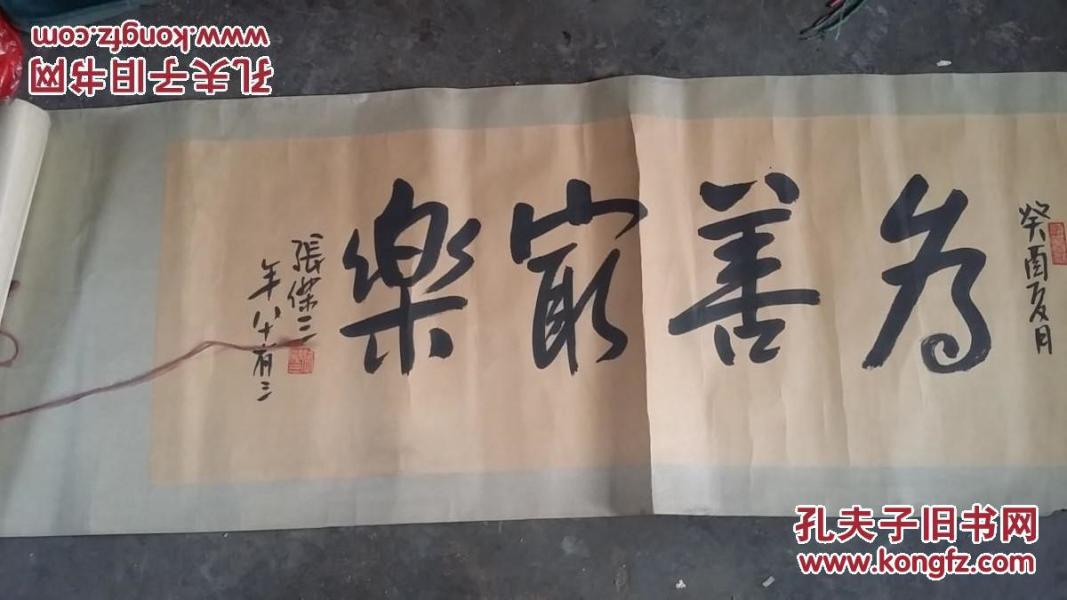 癸酉夏月
为善寂樂
張傑三
年八十有三
孔夫子旧书网
www.kongfz.com
孔夫子旧书网
www.kongfz.com